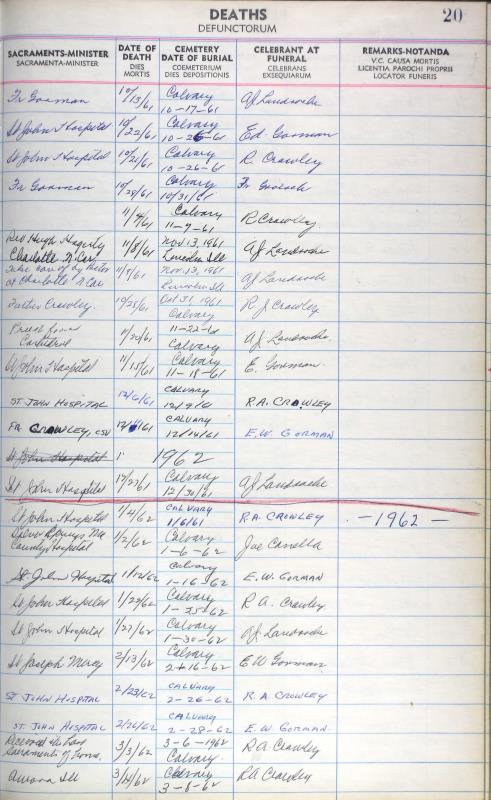 DEATHS 20
DEFUNCTORUM
SACRAMENTS-MINISTER DATE OF DEATH CEMETERY DATE OF BURIAL CELEBRANT AT FUNERAL REMARKS-NOTANDA
SACRAMENTA-MINISTER DIES MORTIS COEMETERIUM DIES DEPOSITIONIS CELEBRANS EXSEQUIARUM V.C. CAUSA MORTIS LICENTIA PAROCHI PROPRII LOCATOR FUNERIS
Fr Gorman 10/13/61 Calvary AJ Landroche
10-17-61
St John Hospital 10/22/61 Calvary Ed. Gorman
10-26-61
St John Hospital 10/21/61 Calvary R Crawley
10-26-61
Fr Gorman 10/28/61 Calvary Fr
10/31/61
11/4/61 Calvary R Crowley
11-7-61
Rev Hugh Hagerty 11/8/61 Nov 13, 1961 AJ Landroche
Charlotte N. Car. Lincoln Ill
Take care of by Pastor 11/9/61 Nov 13, 1961 AJ Landroche
at Charlotte N Car Lincoln Ill
Father Crowley 10/25/61 Oct 31, 1961 R J Crowley
Calvary
Priest from 11/20/61 11-22-61 AJ Landroche
Cathedral Calvary
St John Hospital 11/15/61 Calvary E. Gorman
11-18-61
ST JOHN HOSPITAL 12/6/61 CALVARY R.A. CROWLEY
12/9/61
FR CROWLEY, CSV 12/ /61 CALVARY E.W. GORMAN
12/14/61
St John Hospital 11 1962
St John Hospital 12/27/61 Calvary AJ Landroche
12/30/61
St John Hospital 1/4/62 CALVARY R.A. CROWLEY - 1962 -
1/6/61
1/2/62 Calvary Joe Canella
Hospital 1-6-62
St John Hospital 1/12/62 Calvary E.W. GORMAN
1-16-62
St John Hospital 1/22/62 Calvary R A. Crawley
1-25-62
St John Hospital 1/27/62 Calvary AJ Landroche
1-30-62
St Joseph Mercy 2/13/62 Calvary EW Gorman
2-16-62
ST JOHN HOSPITAL 2/23/62 CALVARY R.A CROWLEY
2-26-62
ST. JOHN HOSPITAL 2/26/62 CALVARY E.W. GORMAN.
2-28-62
Received the Last 3/3/62 3-6-1962 RA Crawley
Sacraments Calvary
Aurora Ill 3/ /62 Calvary RA Crawley
3-8-62